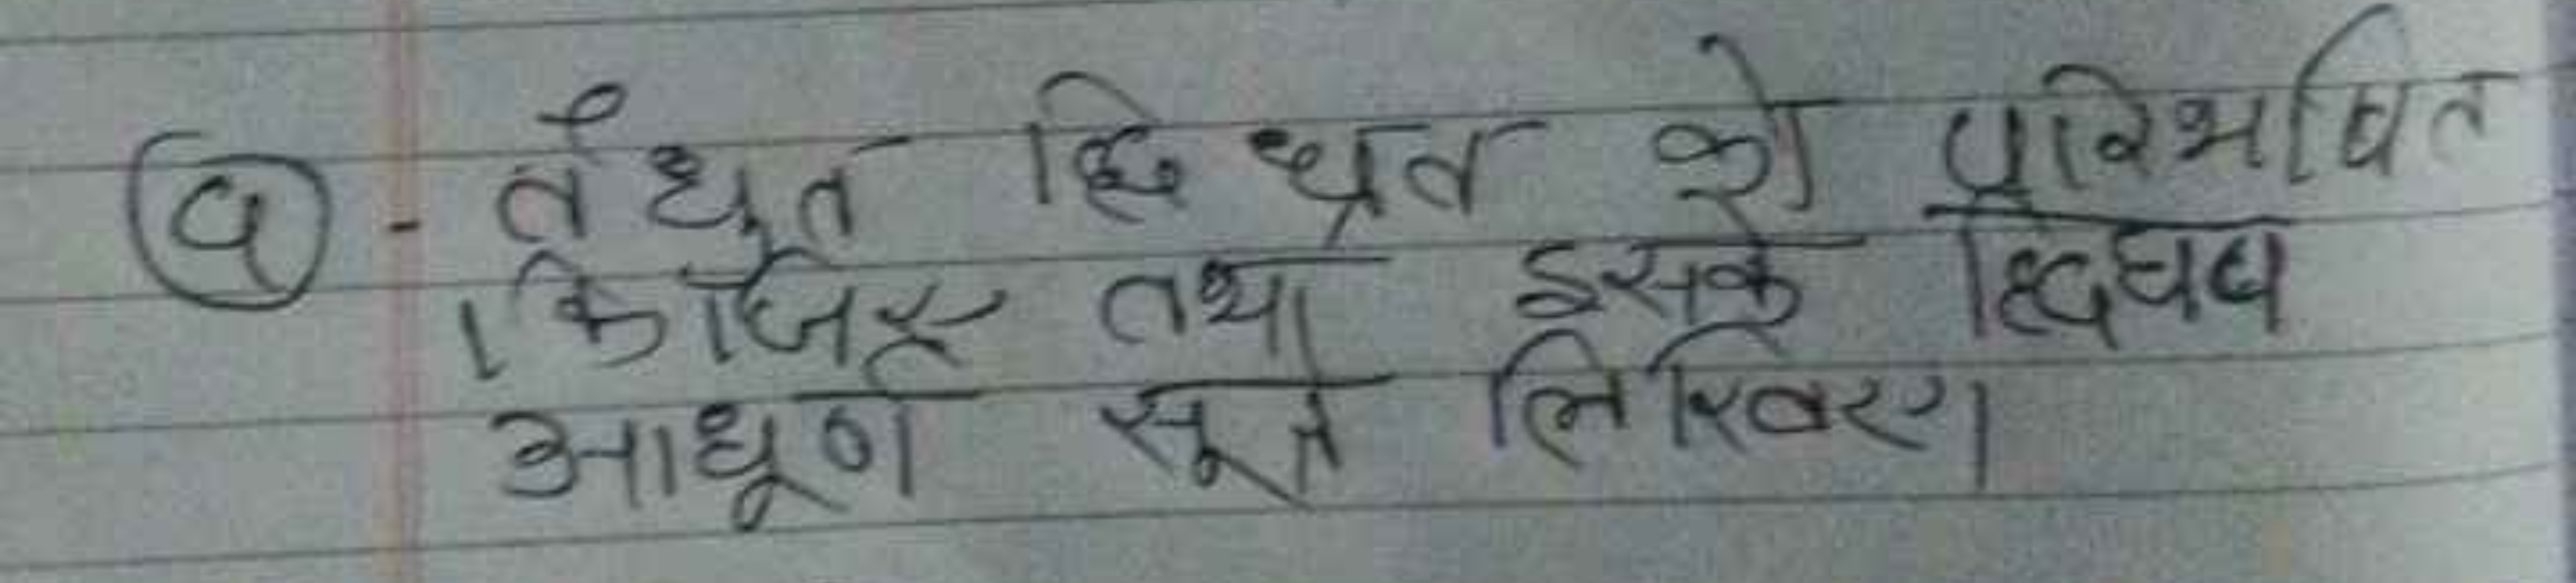 ५ - वैधुत द्विध्रुव को परिभषित
किजिए तथा इसके द्विधुव
आधूर्ण सूत्र लिखिए।